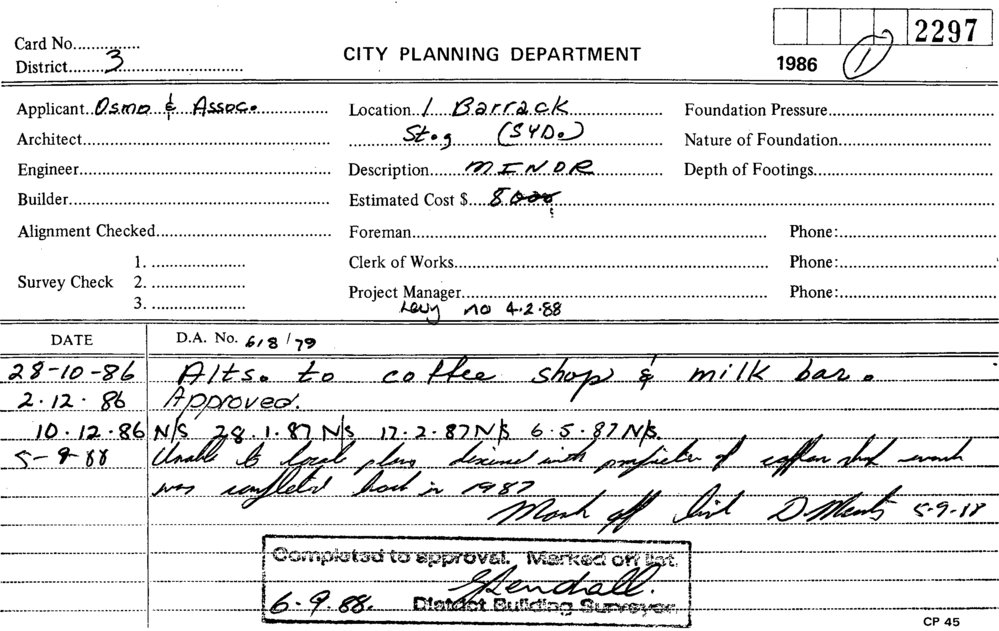 2297
Card No.
CITY PLANNING DEPARTMENT
District 3
1986 1
Applicant Osmo & Assoc. Location 1 Barrack Foundation Pressure
Architect St., (SYD.) Nature of Foundation
Engineer Description MINOR Depth of Footings
Builder Estimated Cost $ 8000
Alignment Checked Foreman Phone:
1. Clerk of Works Phone:
Survey Check 2.
3. Project Manager Phone:
Levy no 4.2.88
DATE D.A. No. 618/79
28-10-86 Alts. to coffee shop & milk bar.
2.12.86 Approved.
10.12.86 N/S 28.1.87 N/S 17.2.87 N/S 6.5.87 N/S.
5-9-88 Unable to locate plans with of coffee shop
was completed back in 1987
Mark off list D 5-9-88
Completed to approval. Marked off list.
6-9-88. District Building Surveyor.
CP 45